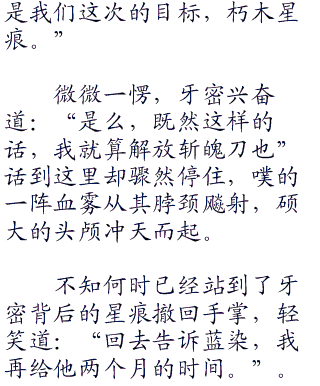 是我们这次的目标，朽木星
痕。”
微微一愣，牙密兴奋
道：“是么，既然这样的
话，我就算解放斩魄刀也”
话到这里却骤然停住，噗的
一阵血雾从其脖颈飚射，硕
大的头颅冲天而起。
不知何时已经站到了牙
密背后的星痕撤回手掌，轻
笑道：“回去告诉蓝染，我
再给他两个月的时间。”。